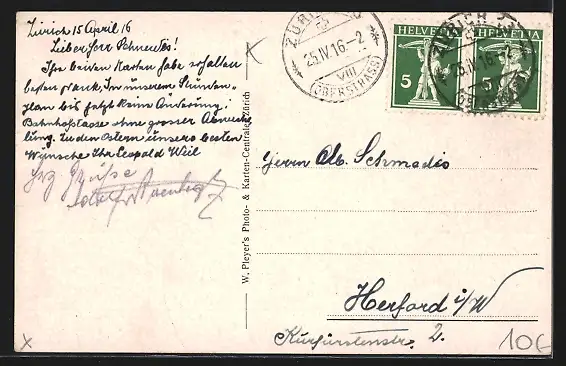 Zürich 15 April 16
Lieber Herr Schmedes!
Ihre beiden Karten habe erhalten
besten Dank. In unserem Stunden=
plan bis jetzt keine Änderung;
Bahnhofstrasse ohne grosser Abwechs
lung. Zu den Ostern unsere besten
Wünsche Ihr Leopold Weil
Hrz Grüße
W. Pleyer's Photo- & Karten-Centrale, Zürich
ZÜRICH
25.IV.16.-2
VIII
(OBERSTRASS)
HELVETIA
5
HELVETIA
5
ZÜRICH
25.IV.16.-2
(OBERSTRASS)
Herrn Alb. Schmedis
Herford i/W
Kurfürstenstr. 2.
10€
K
X